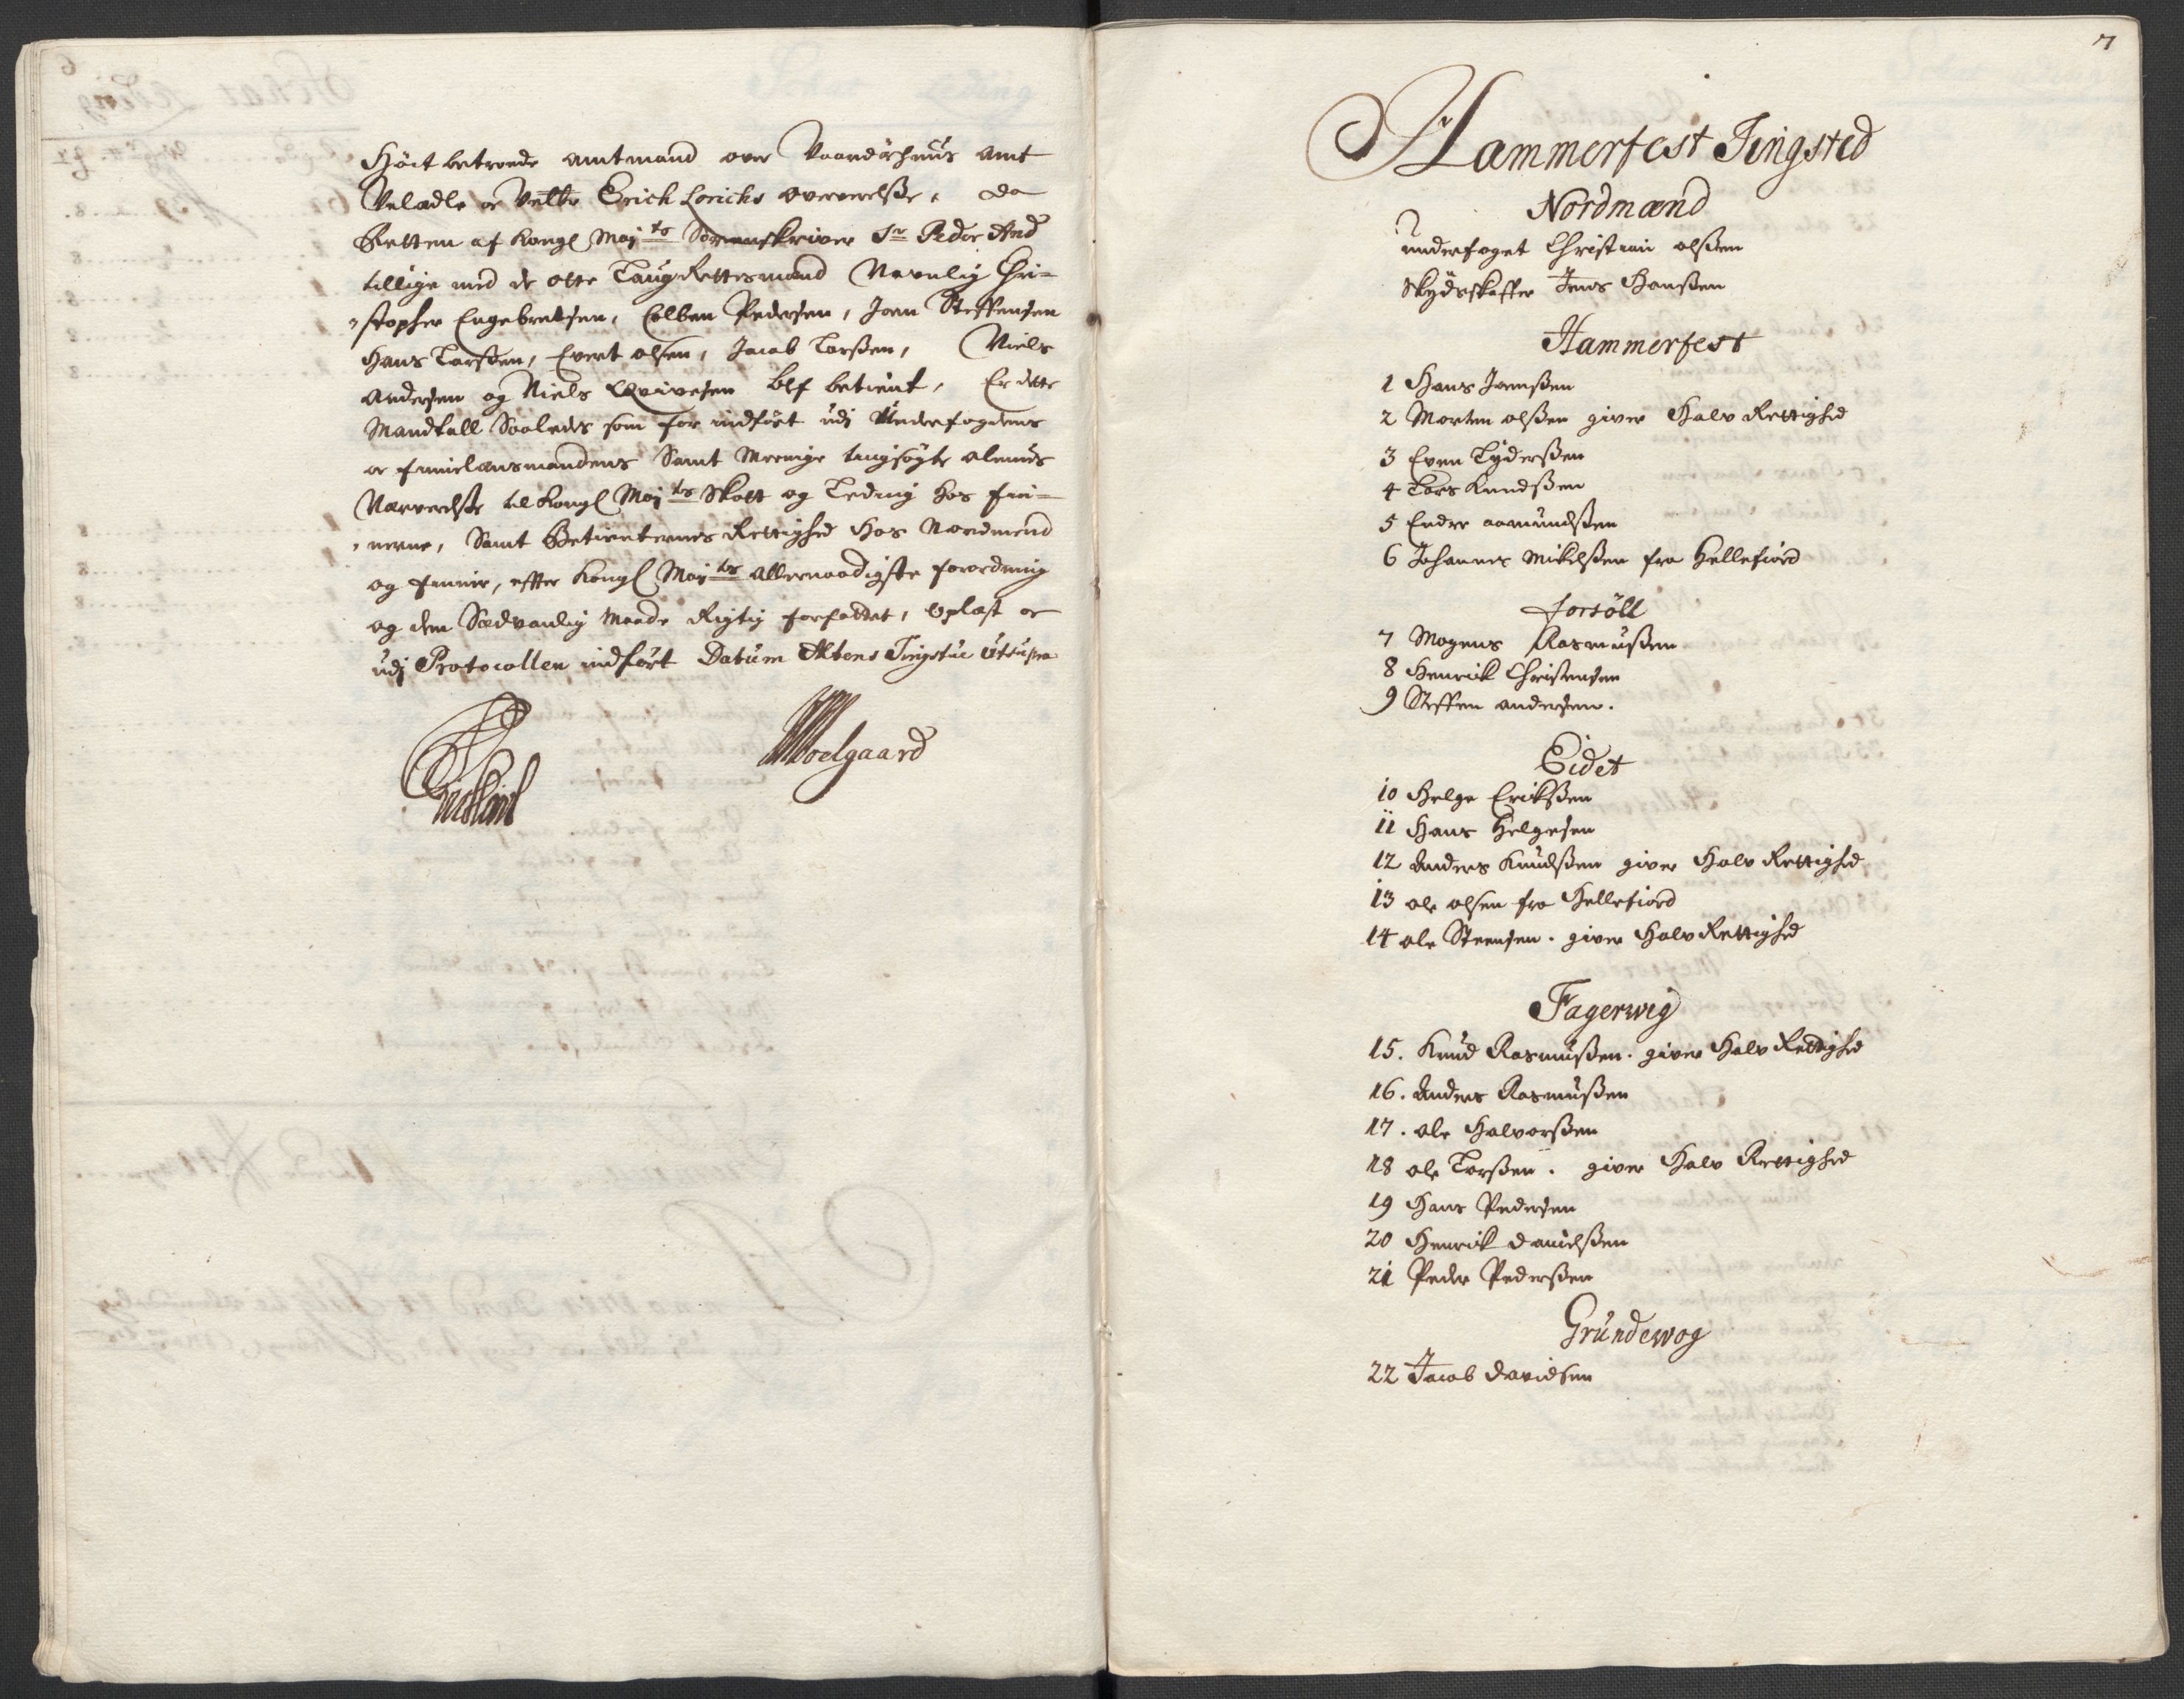 Höit betroede amtmand over Vaardöehuus amt
Velædle og Velbr Erich Lorichs oververelße, da
Retten af Kongl Maj ts Sorenskriver Sr Peder And
tillige med de otte Laug Rettesmænd Navnlig Chri-
stopher Engebretsen, Colben Pedersen, Joen Steffensen
Hans Larßen, Evert olsen, Jacob Larßen, Niels
Andersen og Niels blef betient, Er dette
Mandtall Saaledes som for indfört udj Underfogdens
og finnelænsmandens Samt Meenige tingsögte almues
Nærverelße til Kongl Maj ts Skatt og Leding hos fin-
nerne, Samt Betienternes Rettighed hos Nordmend
og finner, efter Kongl Maj ts allernaadigste forordning
og den Sædvanlig Maade Rigtig forfattet, oplæst og
udj Protocollen indfört Datum Altens Tingstue Utsupra
Woelgaard
7
Hammerfest Tingsted
Nordmænd
underfoget Christian olsßen
Skydsskaffer Jens Hanßen
Hammerfest
1 Hans Joenßen
2 Morten olsßen giver Halv Rettighed
3 Even Tyderßen
4 Lars Knudßen
5 Endre aamundsßen
6 Johannes Mikelßen fra Hellefiord
forsöll
7 Mogens Rasmußen
8 Henrick Christensen
9 Steffen andersen.
Eidet
10 Helge Erickßen
11 Hans Helgesen
12 Anders Knudsßen giver Halv Rettighed
13 ole olsen fra Hellefiord
14 ole Steensen. giver Halv Rettighed
Fagerwig
15. Knud Rasmußen. giver Halv Rettighed
16. Anders Rasmußen
17. ole Halvorßen
18 ole Larßen. giver Halv Rettighed
19 Hans Pedersen
20 Henrick danielßen
21 Peder Pederßen
Grundewog
22 Jacob davidsen